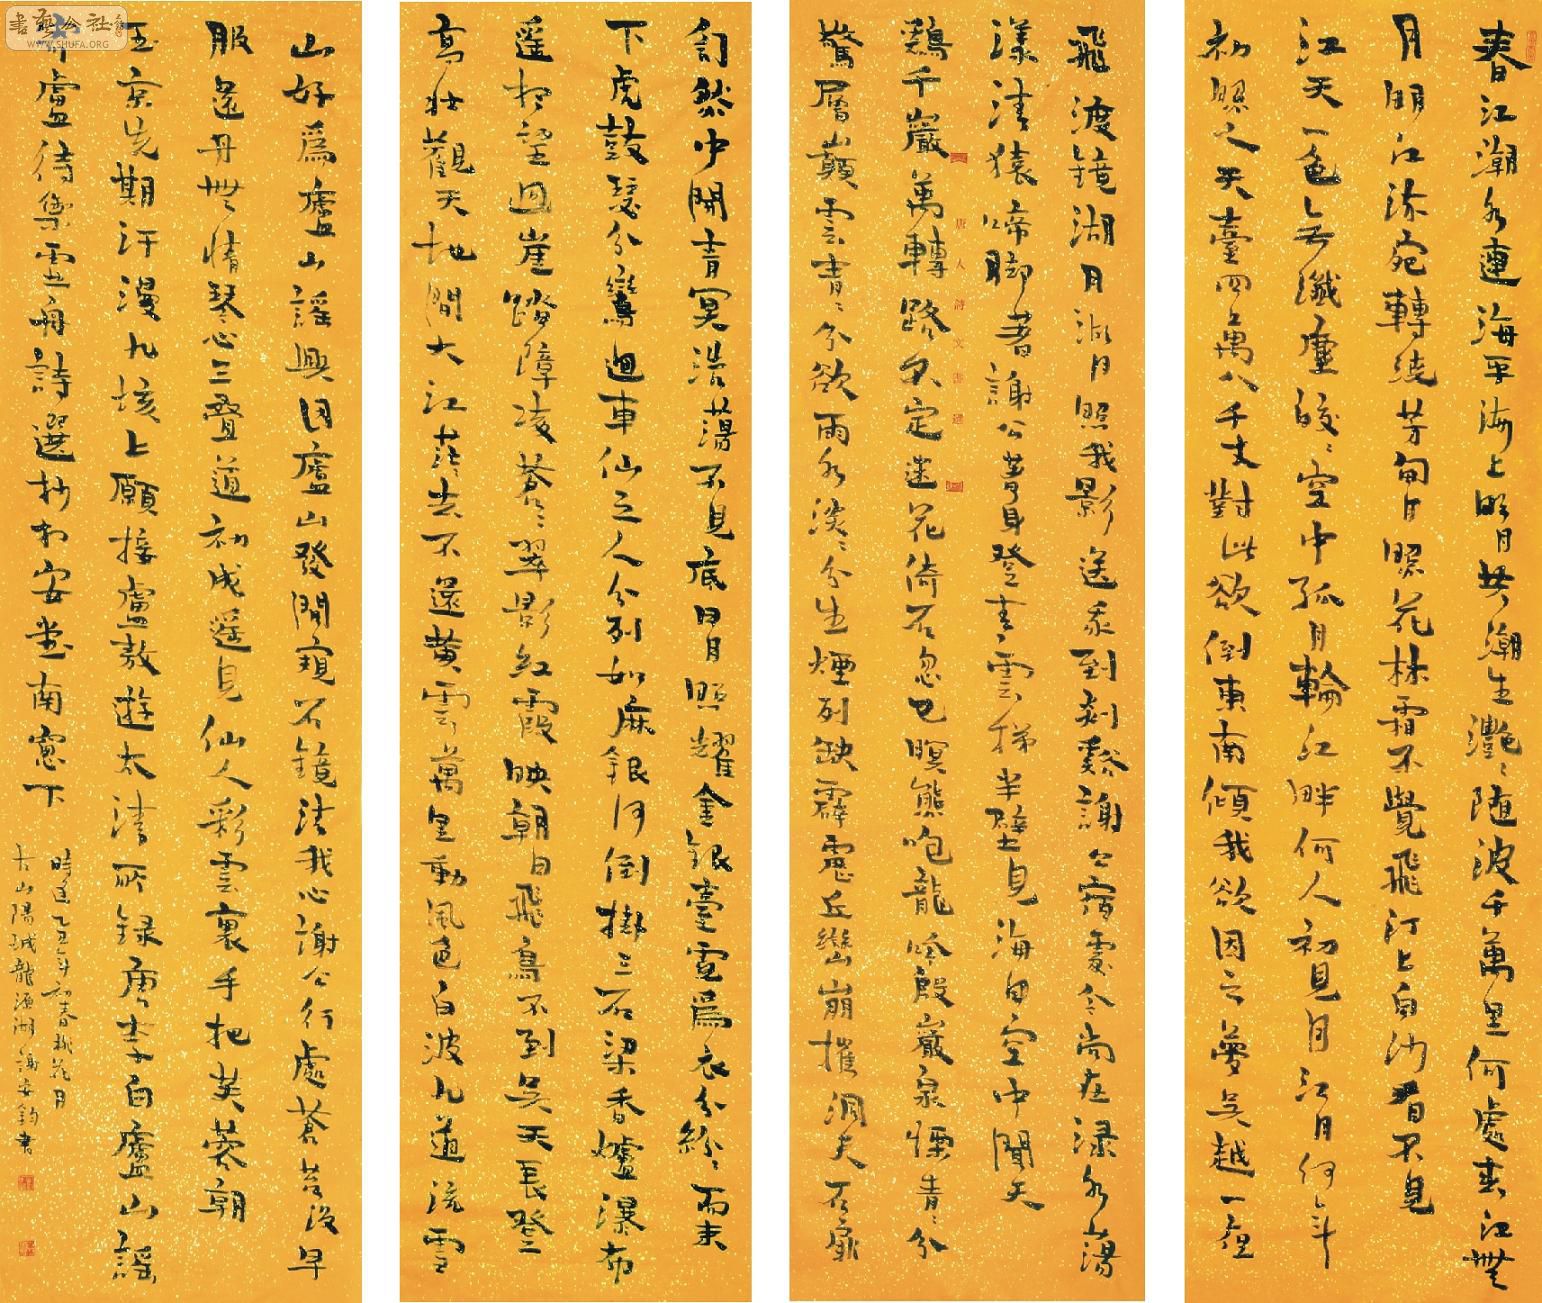 書藝公社
WWW.SHUFA.ORG
春江潮水連海平海上明月共潮生灧〻随波千萬里何處春江無
月明江流宛轉繞芳甸月照花林霜不覺飛汀上白沙看不見
江天一色無纖塵皎〻空中孤月輪江畔何人初見月江月何年
初照人天臺四萬八千丈對此欲倒東南傾我欲因之夢吳越一夜
飛渡鏡湖月湖月照我影送我到剡谿謝公宿處今尚在渌水蕩
漾清猿啼腳著謝公屐身登青雲梯半壁見海日空中聞天
鷄千巖萬轉路不定迷花倚石忽已暝熊咆龍吟殷巖泉慄青〻兮
驚層巔雲青〻兮欲雨水淡〻兮生煙列缺霹靂丘巒崩摧洞天石扉
唐人詩文書選
訇然中開青冥浩蕩不見底日月照耀金銀臺霓爲衣兮紛〻而來
下虎鼓瑟兮鸞迴車仙之人兮列如麻銀河倒掛三石梁香爐瀑布
遥相望迴崖踏障凌蒼〻翠影紅霞映朝日飛鳥不到吳天長登
高壯觀天地間大江茫〻去不還黄雲萬里動風色白波九道流雪
山好爲廬山謠興因廬山發閒窺石鏡清我心謝公行處蒼苔没早
服還丹無情琴心三疊道初成遥見仙人彩雲裏手把芙蓉朝
玉京先期汗漫九垓上願接盧敖遊太清所録唐李白廬山謠
寄盧侍御虚舟詩選抄於安堂南窗下
時在乙丑年初春桃花月
古山陽城龍源湖謝安鈞書